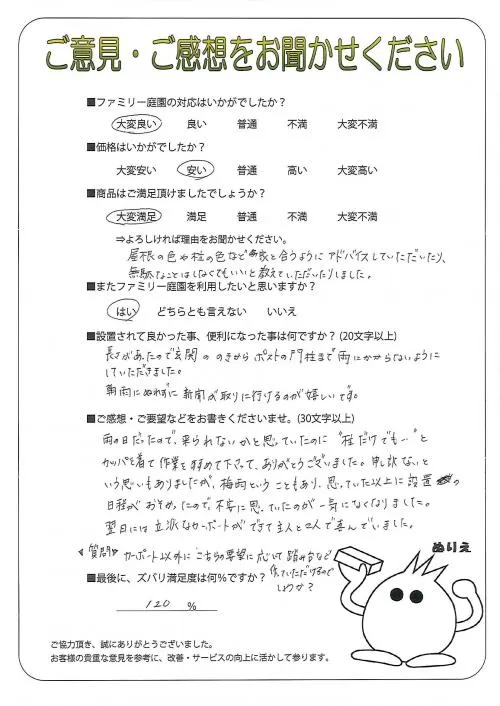 ご意見・ご感想をお聞かせください
■ファミリー庭園の対応はいかがでしたか?
大変良い 良い 普通 不満 大変不満
■価格はいかがでしたか?
大変安い 安い 普通 高い 大変高い
■商品はご満足頂けましたでしょうか?
大変満足 満足 普通 不満 大変不満
⇒よろしければ理由をお聞かせください。
屋根の色や柱の色など家と合うようにアドバイスしていただいたり、
無駄なことはしなくてもいいと教えていただいたりしました。
■またファミリー庭園を利用したいと思いますか?
はい どちらとも言えない いいえ
■設置されて良かった事、便利になった事は何ですか? (20文字以上)
長さがあったので玄関ののきからポストの門柱まで雨にかからないように
していただきました。
朝雨にぬれずに新聞が取りに行けるのが嬉しいです。
■ご感想・ご要望などをお書きくださいませ。(30文字以上)
雨の日だったので、来られないかと思っていたのに"柱だけでも…"と
カッパを着て作業を始めて下さって、ありがとうございました。申し訳ないと
いう思いもありましたが、梅雨ということもあり、思っていた以上に設置の
日程がおそかったので、不安に思っていたのが一気になくなりました。
翌日には立派なカーポートができて主人と2人で喜んでいました。
《質問》カーポート以外にこちらの要望に応じて踏み台など
作っていただけるのでしょうか?
ぬりえ
■最後に、ズバリ満足度は何%ですか?
120 %
ご協力頂き、誠にありがとうございました。
お客様の貴重な意見を参考に、改善・サービスの向上に活かして参ります。